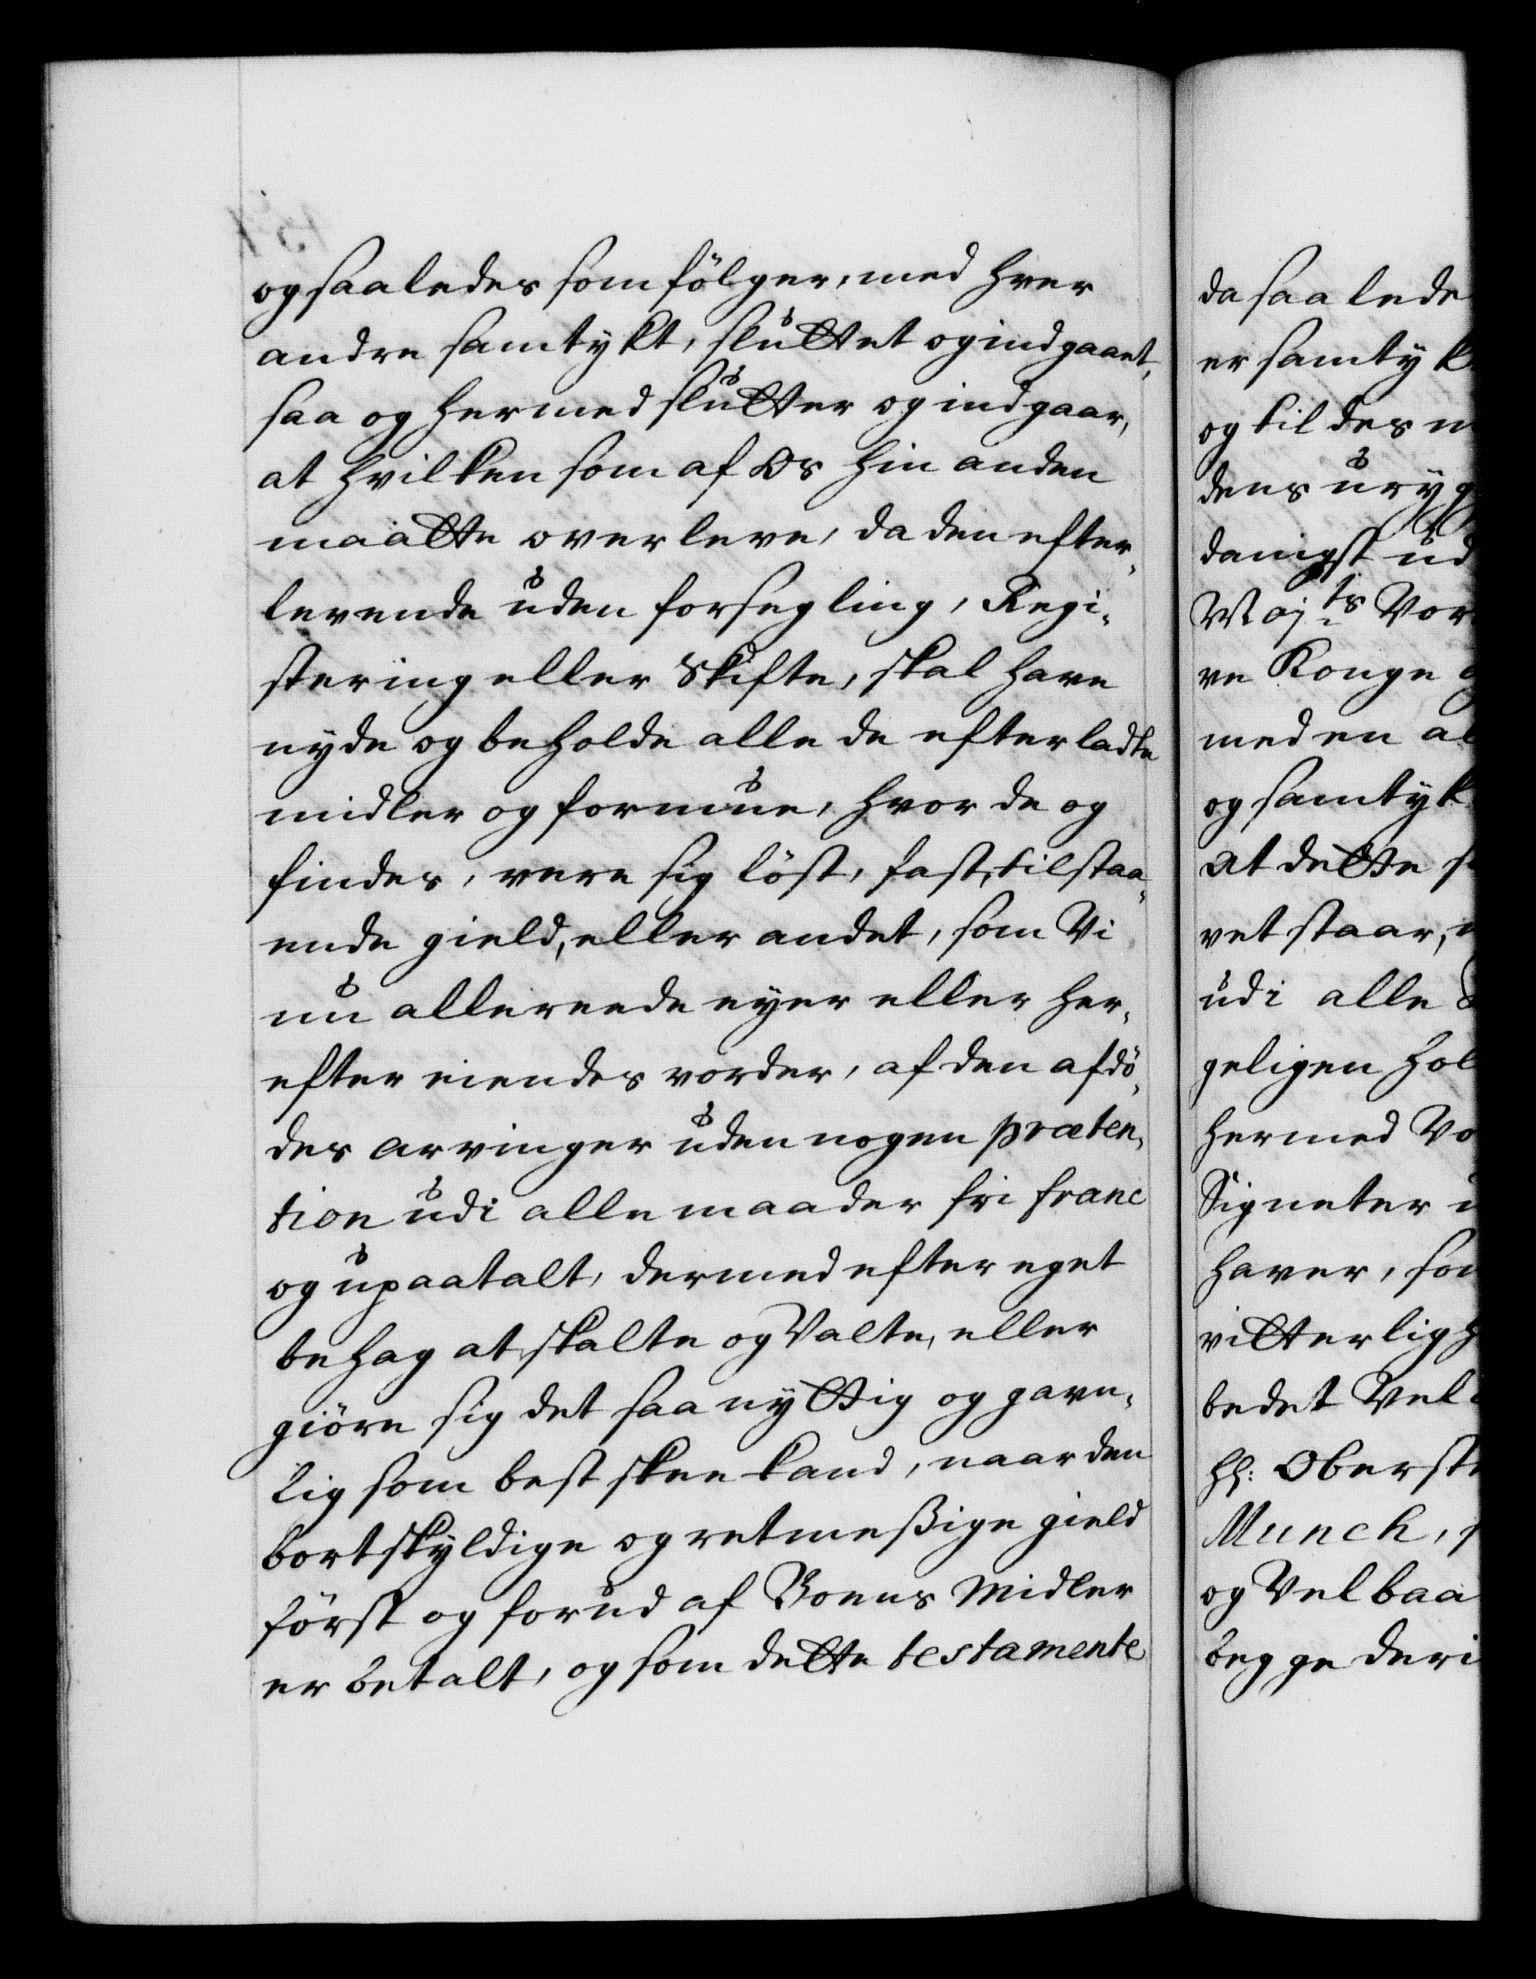 og saaledes som fölger, med hver
andre samtykt, sluttet og indgaaet,
saa og hermed slutter og indgaar,
at hvilken som af os hin anden
maatte overleve, da den efter-
levende uden forsegling, Regi-
stering eller Skifte, skal have
nyde og beholde alle de efterladte
midler og formue, hvor de og
findes, vere sig löst, fast, tilstaa-
ende gield, eller andet, som Vi
nu allereede eyer eller her-
efter eiendes vorder, af den afdö-
des arvinger uden nogen præten-
tion udi alle maader fri franc
og upaatalt, dermed efter eget
behag at skalte og Valte, eller
giöre sig det saa nyttig og gavn-
lig som best skee kand, naar den
bortskyldige og retmeßige gield
först og forud af Boens Midler
er betalt, og som dette testamente
da saa lede
er samtyk
og til des
dens uryg
danigst ud
Majts Vor
re Konge
med en al
og samtyk
at dette
vet staar,
udi alle
geligen hol
hermed Vo
Signeter
haver, som
vitterligh
bedet Vel
hH: Oberste
Munch,
og Velbaa
begge deri